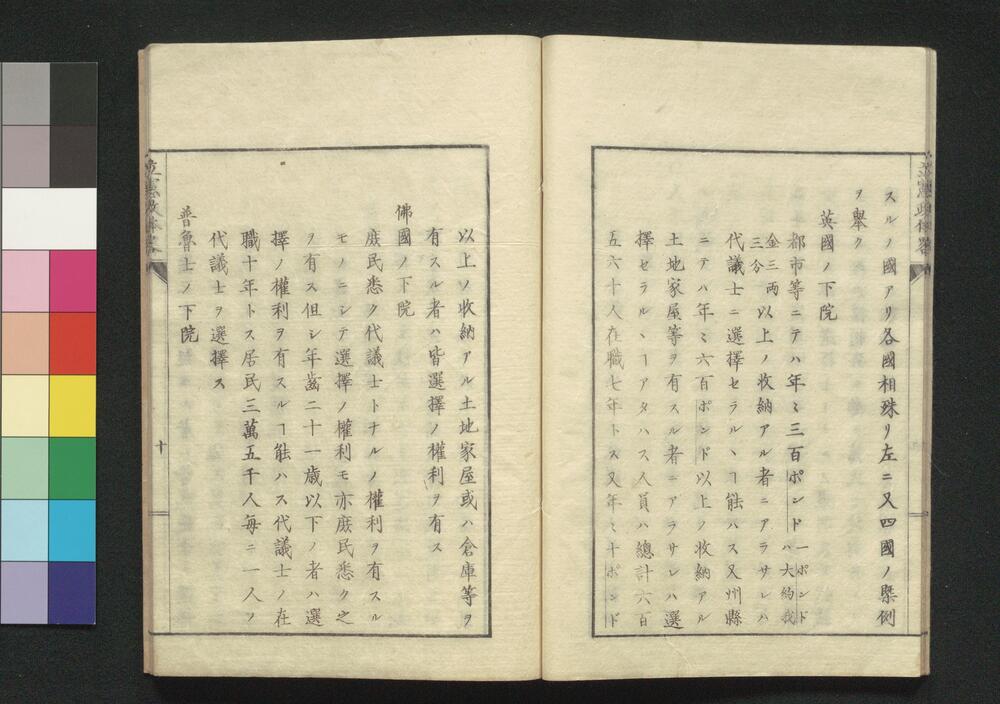 スルノ國アリ各國相殊リ左ニ又四國ノ槩例
ヲ舉ク
英國ノ下院
都市等ニテハ年〻三百ポンド一ポンドハ大約我
金三兩三分以上ノ收納アル者ニアラサレハ
代議士ニ選擇セラルヽヿ能ハス又州縣
ニテハ年〻六百ポンド以上ノ收納アル
土地家屋等ヲ有スル者ニアラサレハ選
擇セラルヽヿアタハス人員ハ總計六百
五六十人在職七年トス又年〻十ポンド
以上ノ收納アル土地家屋或ハ倉庫等ヲ
有スル者ハ皆選擇ノ權利ヲ有ス
佛國ノ下院
庶民悉ク代議士トナルノ權利ヲ有スル
モノニシテ選擇ノ權利モ亦庶民悉ク之
ヲ有ス但シ年齒二十一歳以下ノ者ハ選
擇ノ權利ヲ有スルヿ能ハス代議士ノ在
職十年トス居民三萬五千人每ニ一人ノ
代議士ヲ選擇ス
普魯士ノ下院
立憲政體畧
十